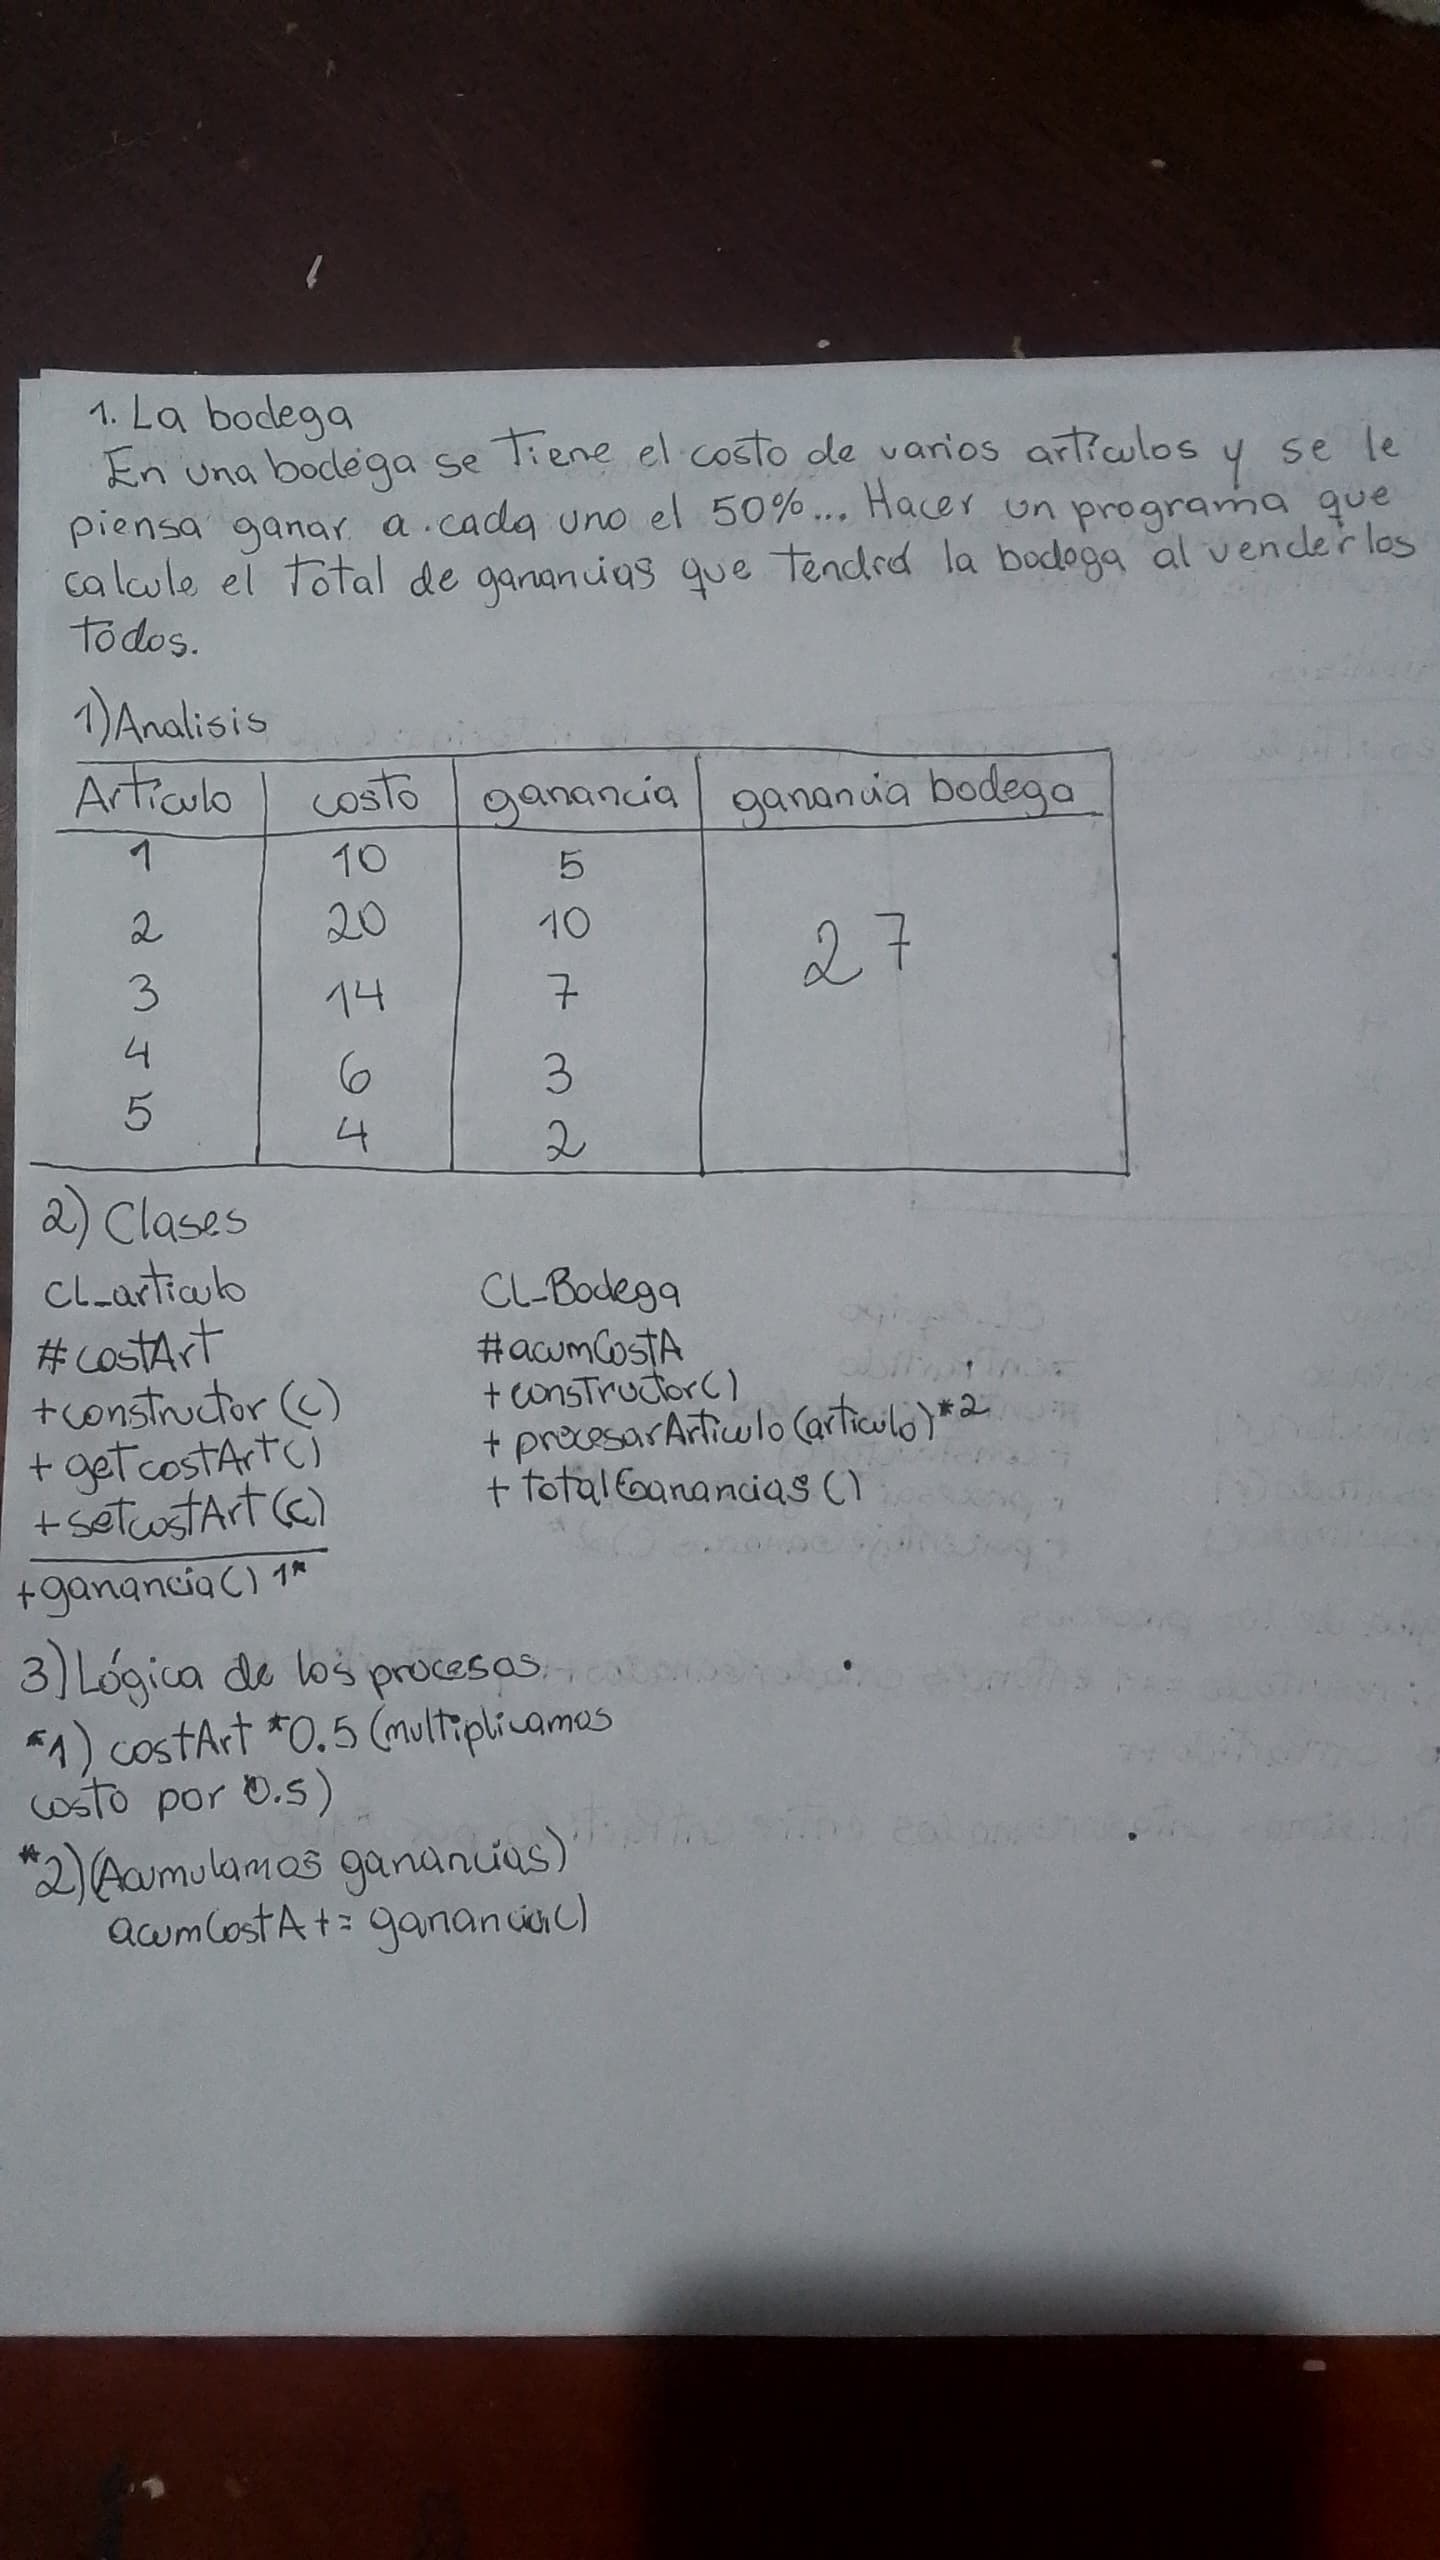 1. La bodega
En una bodega se tiene el costo de varios artículos y se le
piensa ganar a cada uno el 50%... Hacer un programa que
calcule el total de ganancias que tendrá la bodega al venderlos
todos.
1) Analisis
Artículo costo ganancia ganancia bodega
1 10 5
2 20 10 27
3 14 7
4 6 3
5 4 2
2) Clases
CL_articulo CL_Bodega
#costArt #acumCostA
+constructor(c) +constructor()
+getcostArt() +procesarArticulo(articulo)*2
+setcostArt(c) +totalGanancias()
+ganancia() 1*
3) Lógica de los procesos
*1) costArt *0.5 (multiplicamos
costo por 0.5)
*2) (Acumulamos ganancias)
acumCostA += ganancia()